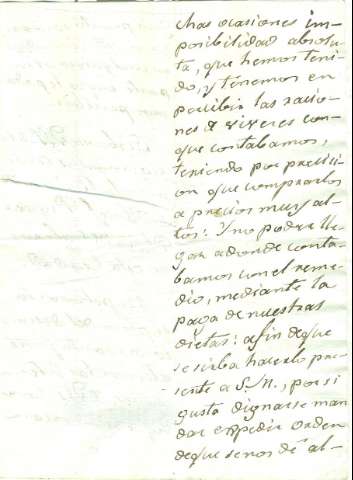 chas ocasiones im-
posibilidad absolu-
ta, que hemos teni-
do, y tenemos en
percibir las racio-
nes de viveres con-
que contabamos,
teniendo por precisi-
on que comprarlos
a precios muy al-
tos: Y no poder lle-
gar adonde conta-
bamos con el reme-
dio, mediante la
paga de nuestras
dietas: afin deque
se sirba hacerlo pre-
sente a S. M., por si
gusta dignarse man
dar expedir orden
deque senos dé al-